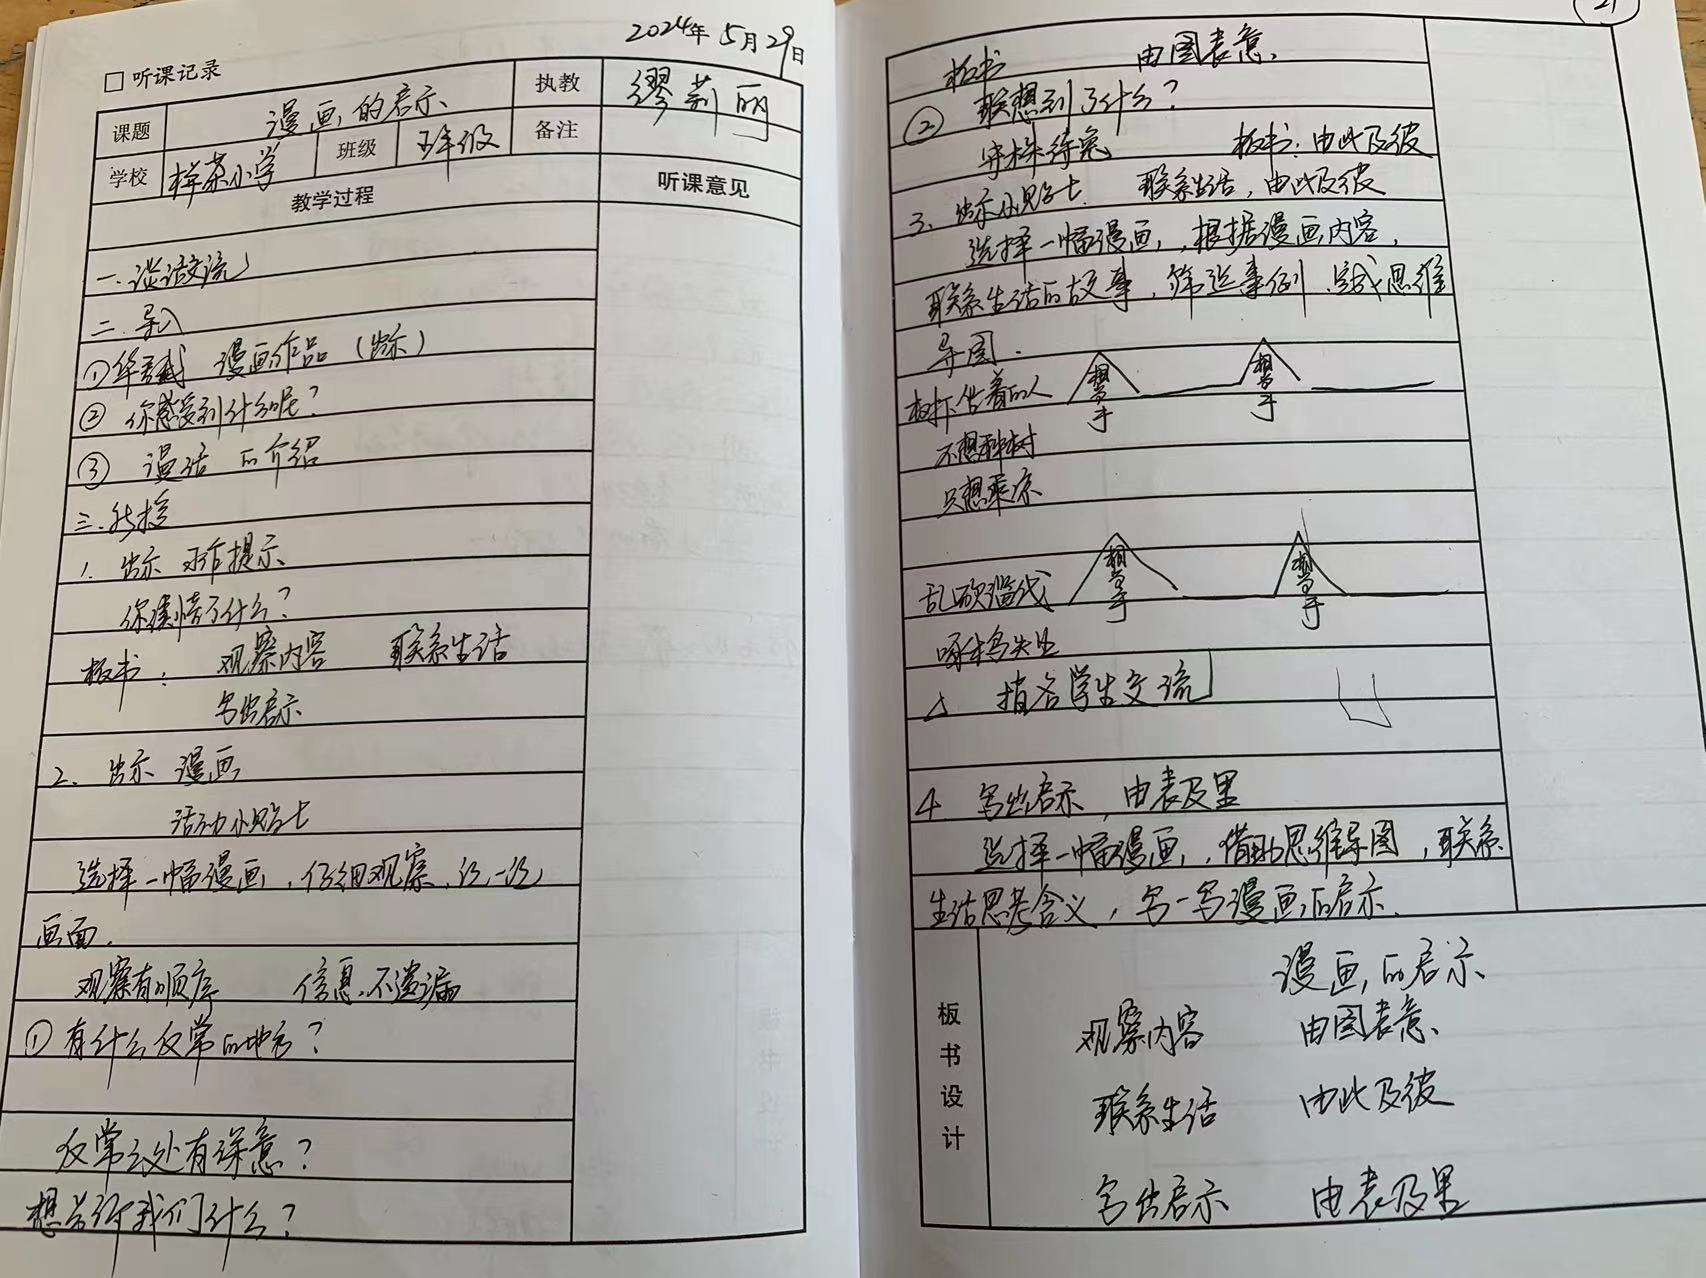 2024年5月29日
□ 听课记录
课题 漫画的启示 执教 缪莉丽
学校 小学 班级 五年级 备注
教学过程 听课意见
一.谈话交流
二.导入
① 华君武 漫画作品(出示)
② 你感受到什么呢?
③ 漫话 的介绍
三.
1. 出示 习作提示
你读懂了什么?
板书: 观察内容 联系生活
写出启示
2. 出示 漫画
活动小贴士
选择一幅漫画,仔细观察,说一说
画面.
观察有顺序 信息不遗漏
① 有什么反常的地方?
反常之处有深意?
想告诉我们什么?
21
板书 由图表意.
② 联想到了什么?
守株待兔 板书:由此及彼
3. 出示小贴士. 联系生活,由此及彼
选择一幅漫画,根据漫画内容,
联系生活的故事,筛选事例,完成思维
导图.
树下坐着的人 相当于 相当于
不想种树
只想乘凉
乱砍滥伐 相当于 相当于
啄木鸟失业
指名学生交流
4 写出启示,由表及里
选择一幅漫画,借助思维导图,联系
生活思考含义,写一写漫画的启示.
板书设计
漫画的启示
观察内容 由图表意
联系生活 由此及彼
写出启示 由表及里